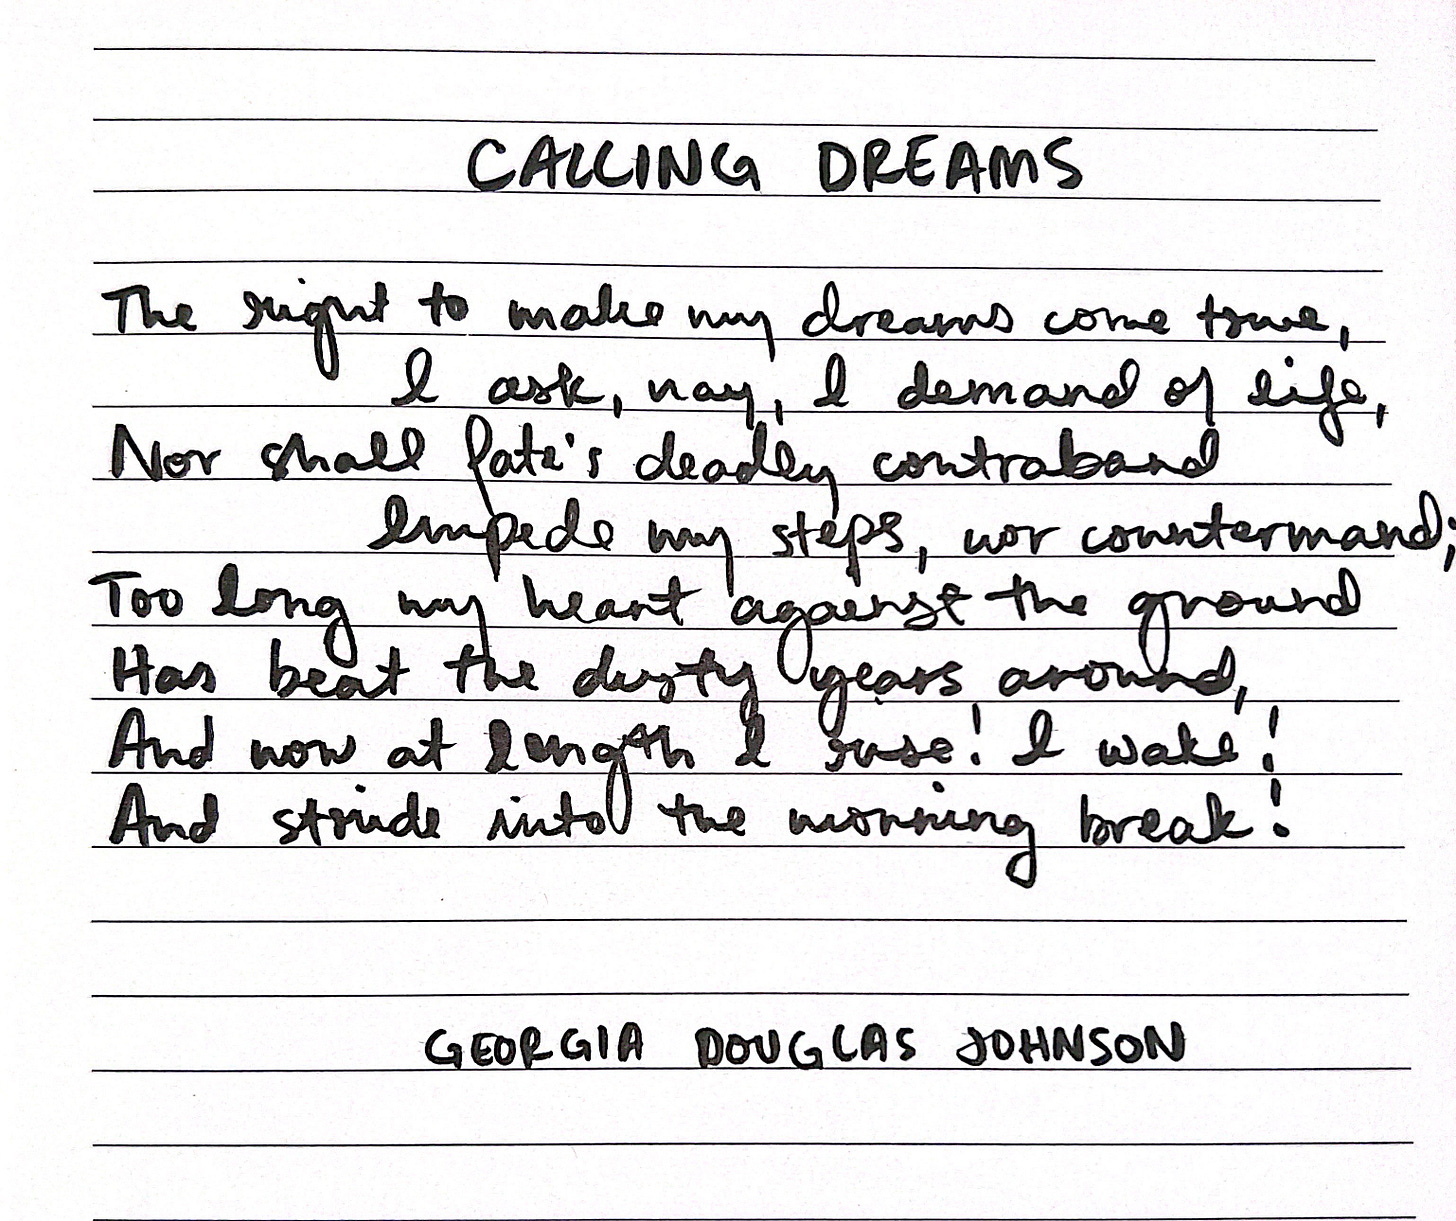 CALLING DREAMS
The right to make my dreams come true,
I ask, nay, I demand of life,
Nor shall fate's deadly contraband
Impede my steps, nor countermand;
Too long my heart against the ground
Has beat the dusty years around,
And now at length I rise! I wake!
And stride into the morning break!
GEORGIA DOUGLAS JOHNSON